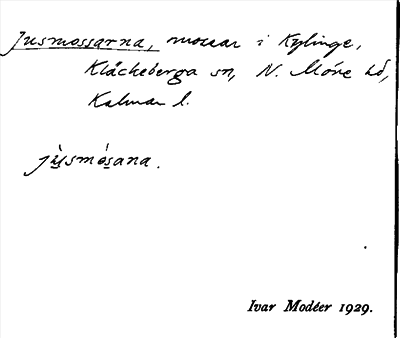 Jusmossarna, mossar i Kylinge,
Kläckeberga sn, N. Möre hd,
Kalmar l.
jùsmósana.
Ivar Modéer 1929.